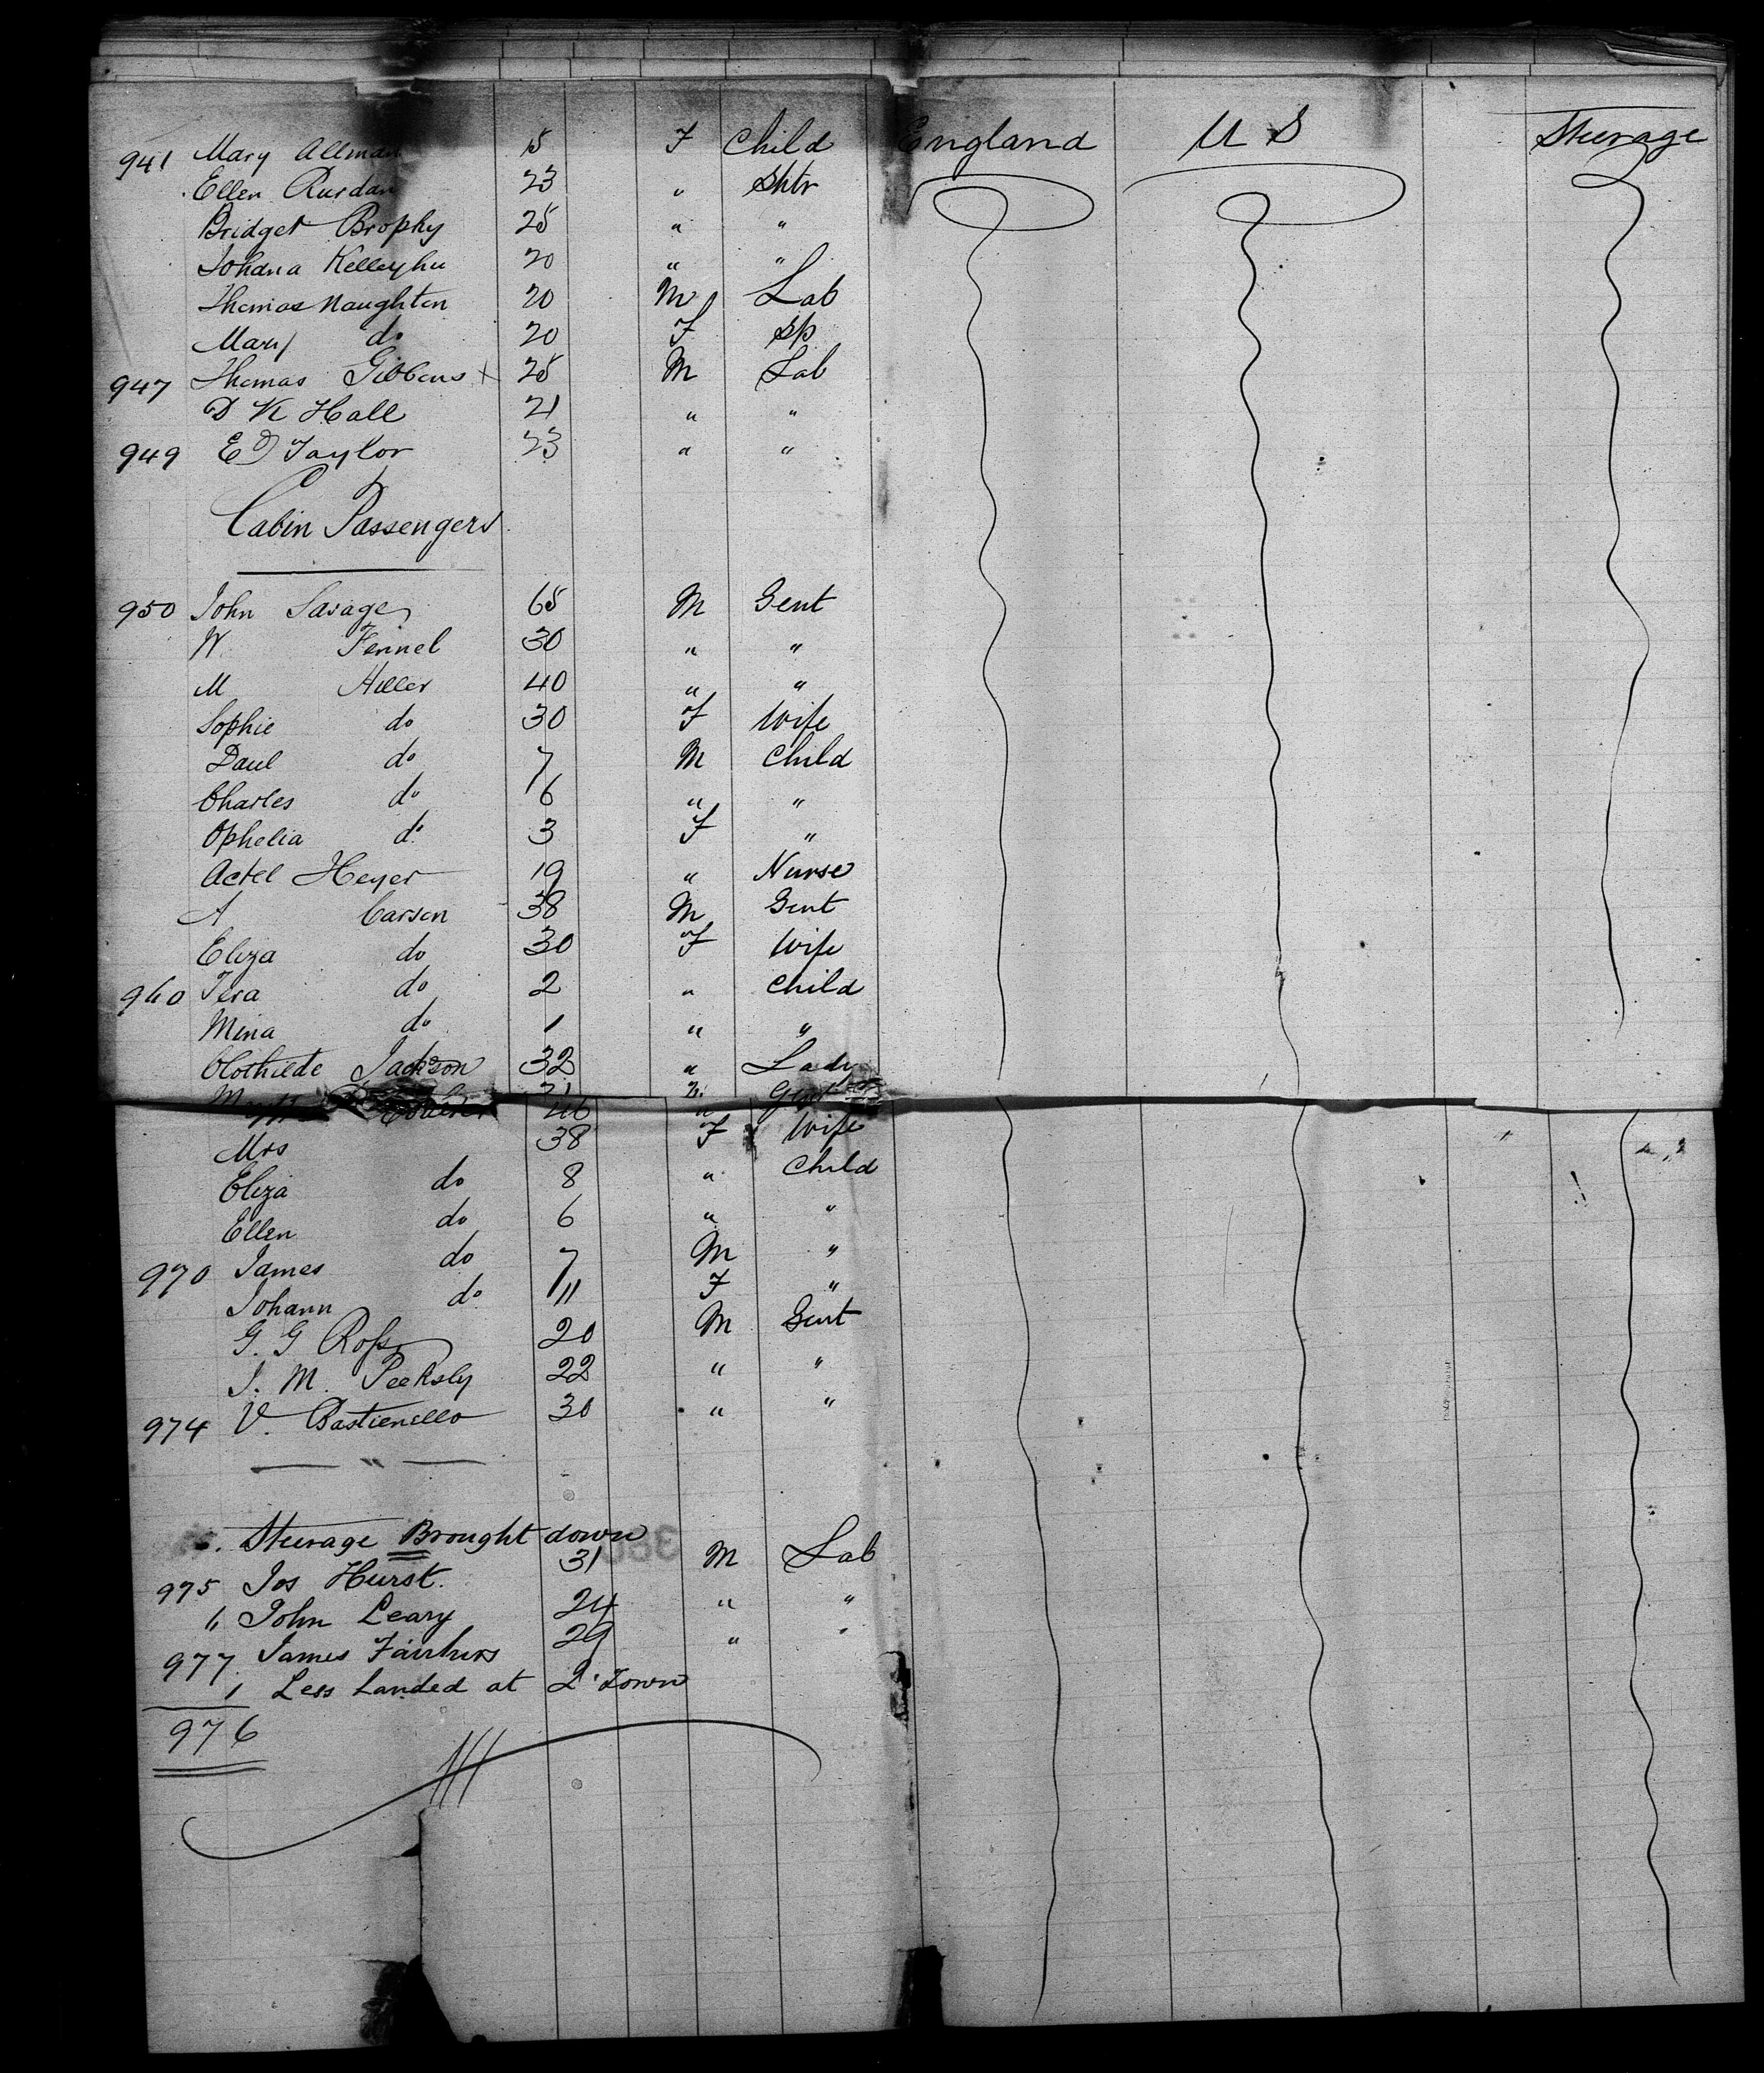 941 Mary Allman 15 F Child England U S Steerage
Ellen Rierdan 23 " Sptr
Bridget Brophy 25 " "
Johana Kelleyhu 20 " "
Thomas Naughten 20 M Lab
Mary do 20 F Sp
947 Thomas Gibbons + 25 M Lab
D K Hall 21 " "
949 E D Taylor 23 " "
Cabin Passengers
950 John Savage 65 M Gent
W Fennel 30 " "
M Hiller 40 " "
Sophie do 30 F Wife
Paul do 7 M Child
Charles do 6 " "
Ophelia do 3 F "
Actel Heyer 19 " Nurse
A Carson 38 M Gent
Eliza do 30 F Wife
960 Tera do 2 " Child
Mina do 1 " "
Clothilde Jackson 32 " Lady
Gent
46 "
Mrs 38 F Wife
Eliza do 8 " Child
Ellen do 6 " "
970 James do 7 M "
Johann do 11 F "
G. G Ross 20 M Gent
J. M. Peeksly 22 " "
974 V. Bastienello 30 " "
"
Steerage Brought down
975 Jos Hurst. 31 M Lab
6 John Leary 24 " "
977 James Fairhurs 29 " "
1 Less Landed at Q. Town
976